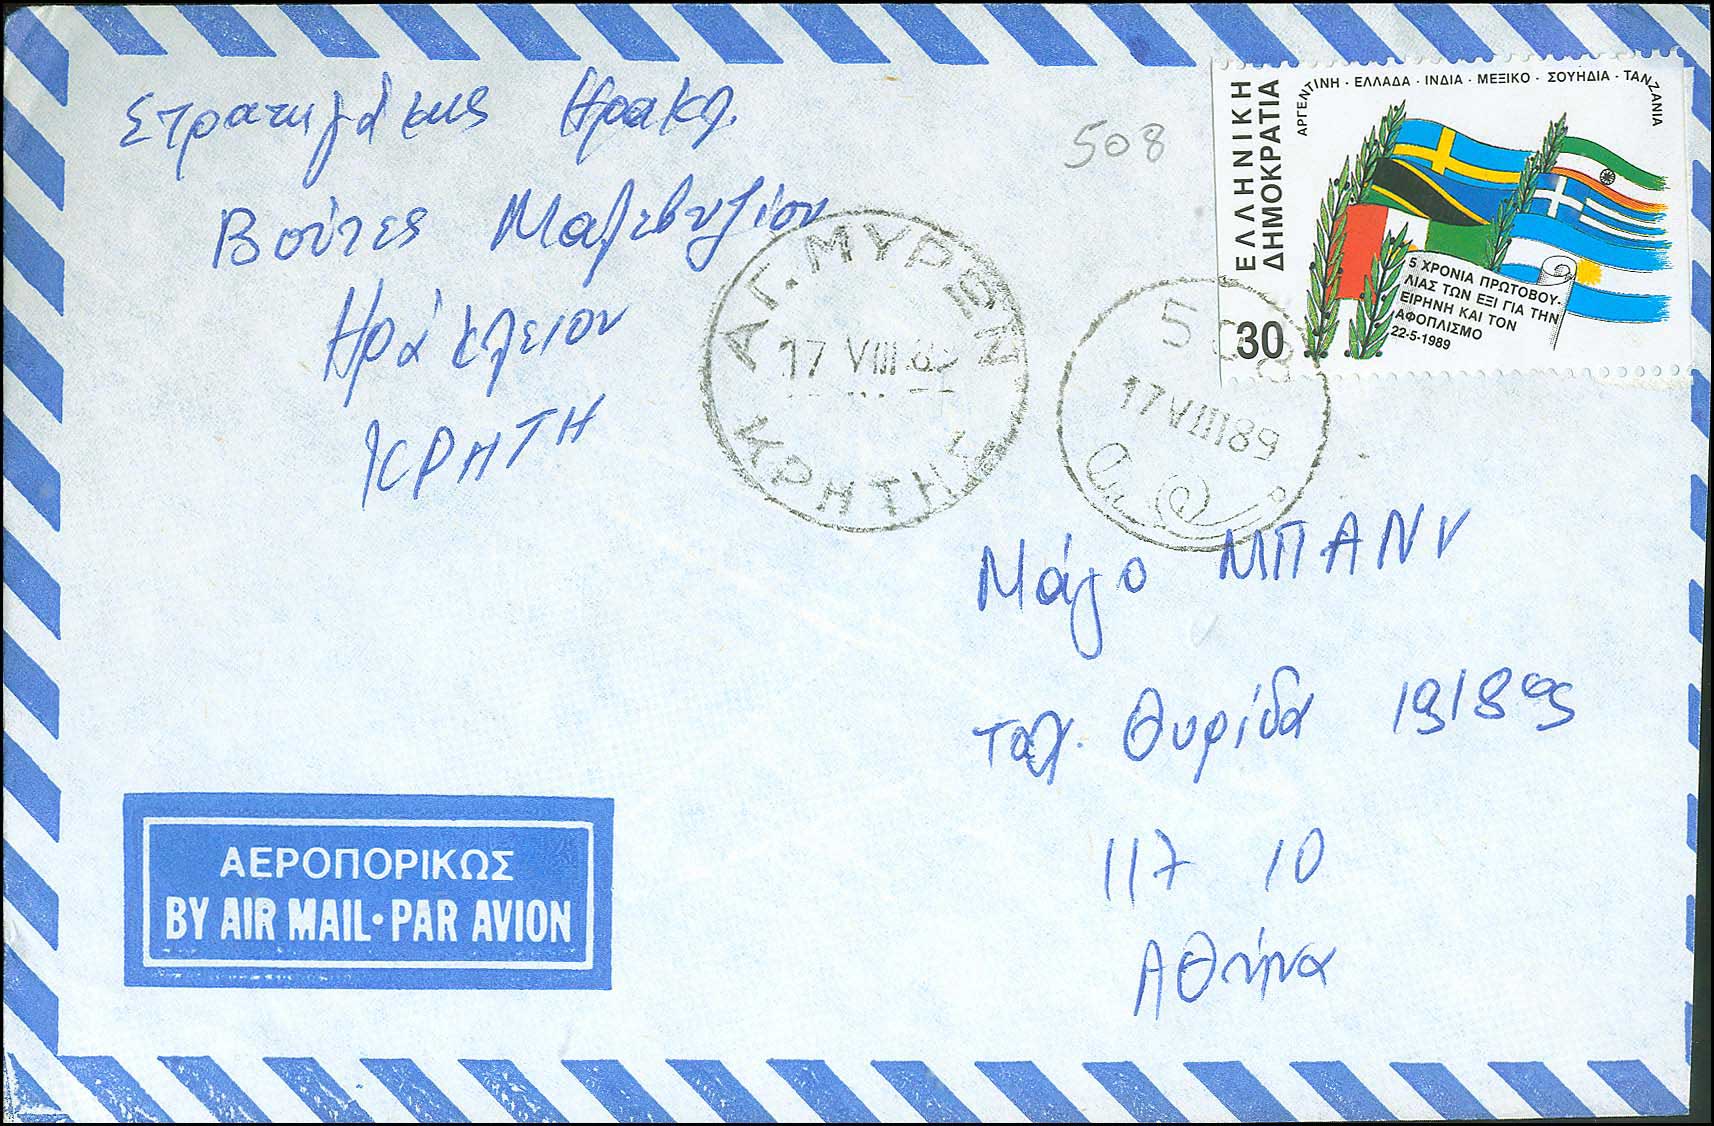 Στρατηγάκης Ηρακλ.
Βούτες Μαλεβυζίου
Ηράκλειον
ΚΡΗΤΗ
508
ΕΛΛΗΝΙΚΗ
ΔΗΜΟΚΡΑΤΙΑ
ΑΡΓΕΝΤΙΝΗ - ΕΛΛΑΔΑ - ΙΝΔΙΑ - ΜΕΞΙΚΟ - ΣΟΥΗΔΙΑ - ΤΑΝΖΑΝΙΑ
5 ΧΡΟΝΙΑ ΠΡΩΤΟΒΟΥ-
ΛΙΑΣ ΤΩΝ ΕΞΙ ΓΙΑ ΤΗΝ
ΕΙΡΗΝΗ ΚΑΙ ΤΟΝ
ΑΦΟΠΛΙΣΜΟ
22-5-1989
30
ΑΓ. ΜΥΡΩΝ
17 VIII 89
ΚΡΗΤΗΣ
508
17 VIII 89
Μάγο ΜΠΑΝΥ
ταχ. Θυρίδα
117 10
Αθήνα
ΑΕΡΟΠΟΡΙΚΩΣ
BY AIR MAIL • PAR AVION